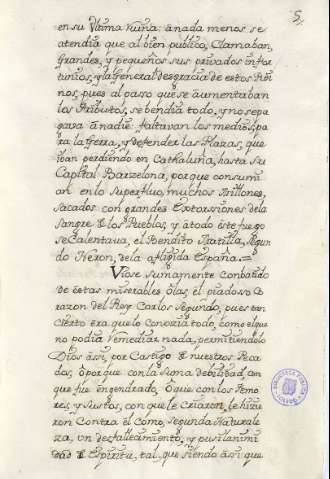 5
en su Ultima Ruina: anada menos se
atendia que al bien publico, Clamaban,
Grandes, y pequeños sus privados infor
tunios, y la General desgracia de estos Rei
nos, pues al passo que se aumentaban
los tributos, se bendia todo, y no se pa
gava à nadie: faltavan los medios, pa
ra la Gerra, y defender las Plazas, que
iban perdiendo en Cathaluña, hasta su
Capital Barzelona, porque consumi
an en lo superfluo, muchos Millones,
sacados con grandes Extorsiones dela
sangre de los Pueblos, y atodo este fuego
se Calentava, el Bendito Matilla, Segun
do Neron, de la afligida España.
Viose sumamente Conbatido
de estas miserables olas, el piadoso Co
razon del Rey Carlos Segundo, pues tan
cierto era que lo Conozia todo, como el que
no podia Remediar nada, permitiendolo
Dios assi, por Castigo de nuestros Peca
dos, ò por que con la suma debilidad, con
que fue engendrado, ò que con los temo
res, y sustos, con que le Criaron, le hizie
ron Contraer Como, segunda Naturale
za, un desfallecimiento, y pusilanimi
dad de Espiritu, tal, que siendo assi que